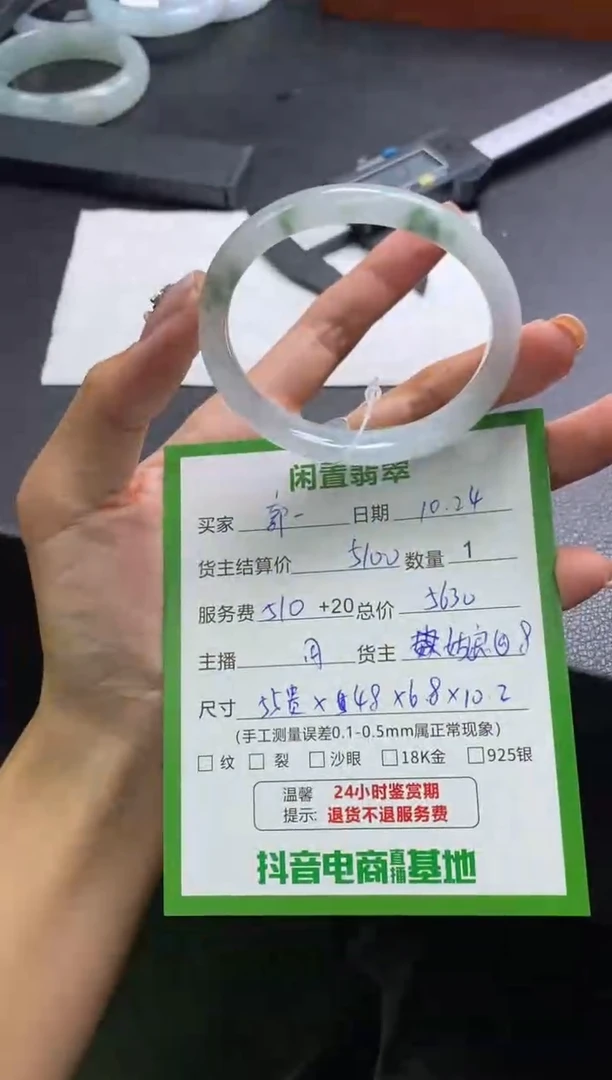 闲置翡翠
买家 郭一 日期 10.24
货主结算价 5100 数量 1
服务费 510 +20 总价 5630
主播 周 货主 姑良
尺寸 55贵×48×6.8×10.2
(手工测量误差0.1-0.5mm属正常现象)
□ 纹 □ 裂 □ 沙眼 □ 18K金 □ 925银
温馨 24小时鉴赏期
提示: 退货不退服务费
抖音电商直播基地